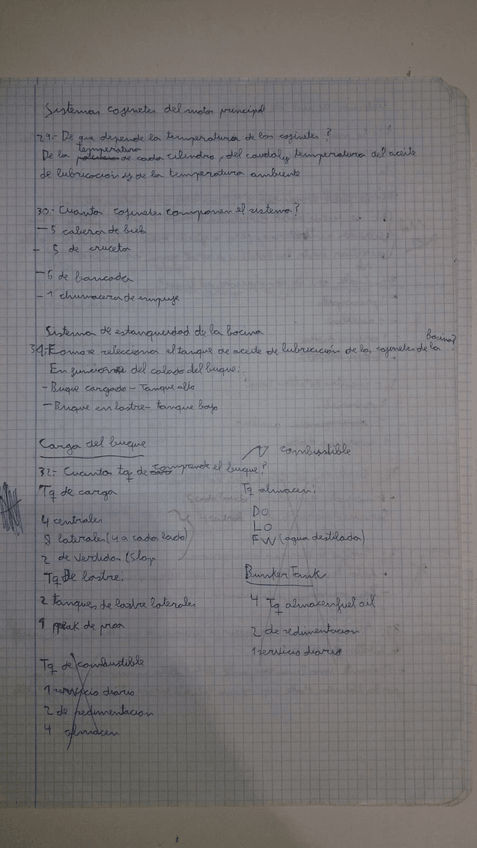 Sistemas cojinetes del motor principal
29.- De que depende la temperatura de los cojinetes?
De la temperatura de cada cilindro, del caudal y temperatura del aceite
de lubricación y de la temperatura ambiente
30.- Cuantos cojinetes componen el sistema?
- 5 cabeza de biela
- 5 de cruceta
- 6 de bancada
- 1 chumacera de empuje
Sistema de estanqueidad de la bocina
31.- Como se selecciona el tanque de aceite de lubricación de los cojinetes de la bocina?
En funcion del calado del buque:
- Buque cargado - Tanque alto
- Buque en lastre - tanque bajo
Carga del buque
32.- Cuantos tq de comprende el buque?
Tq de carga
4 centrales
8 laterales (4 a cada lado)
2 de vertidos (slop
Tq de lastre.
2 tanques de lastre laterales
1 peak de proa
Tq de combustible
1 servicio diario
2 de sedimentacion
4 almacen
combustible
Tq almacen:
DO
LO
FW (agua destilada)
Bunker Tank
4 Tq almacen fuel oil
2 de sedimentacion
1 servicio diario